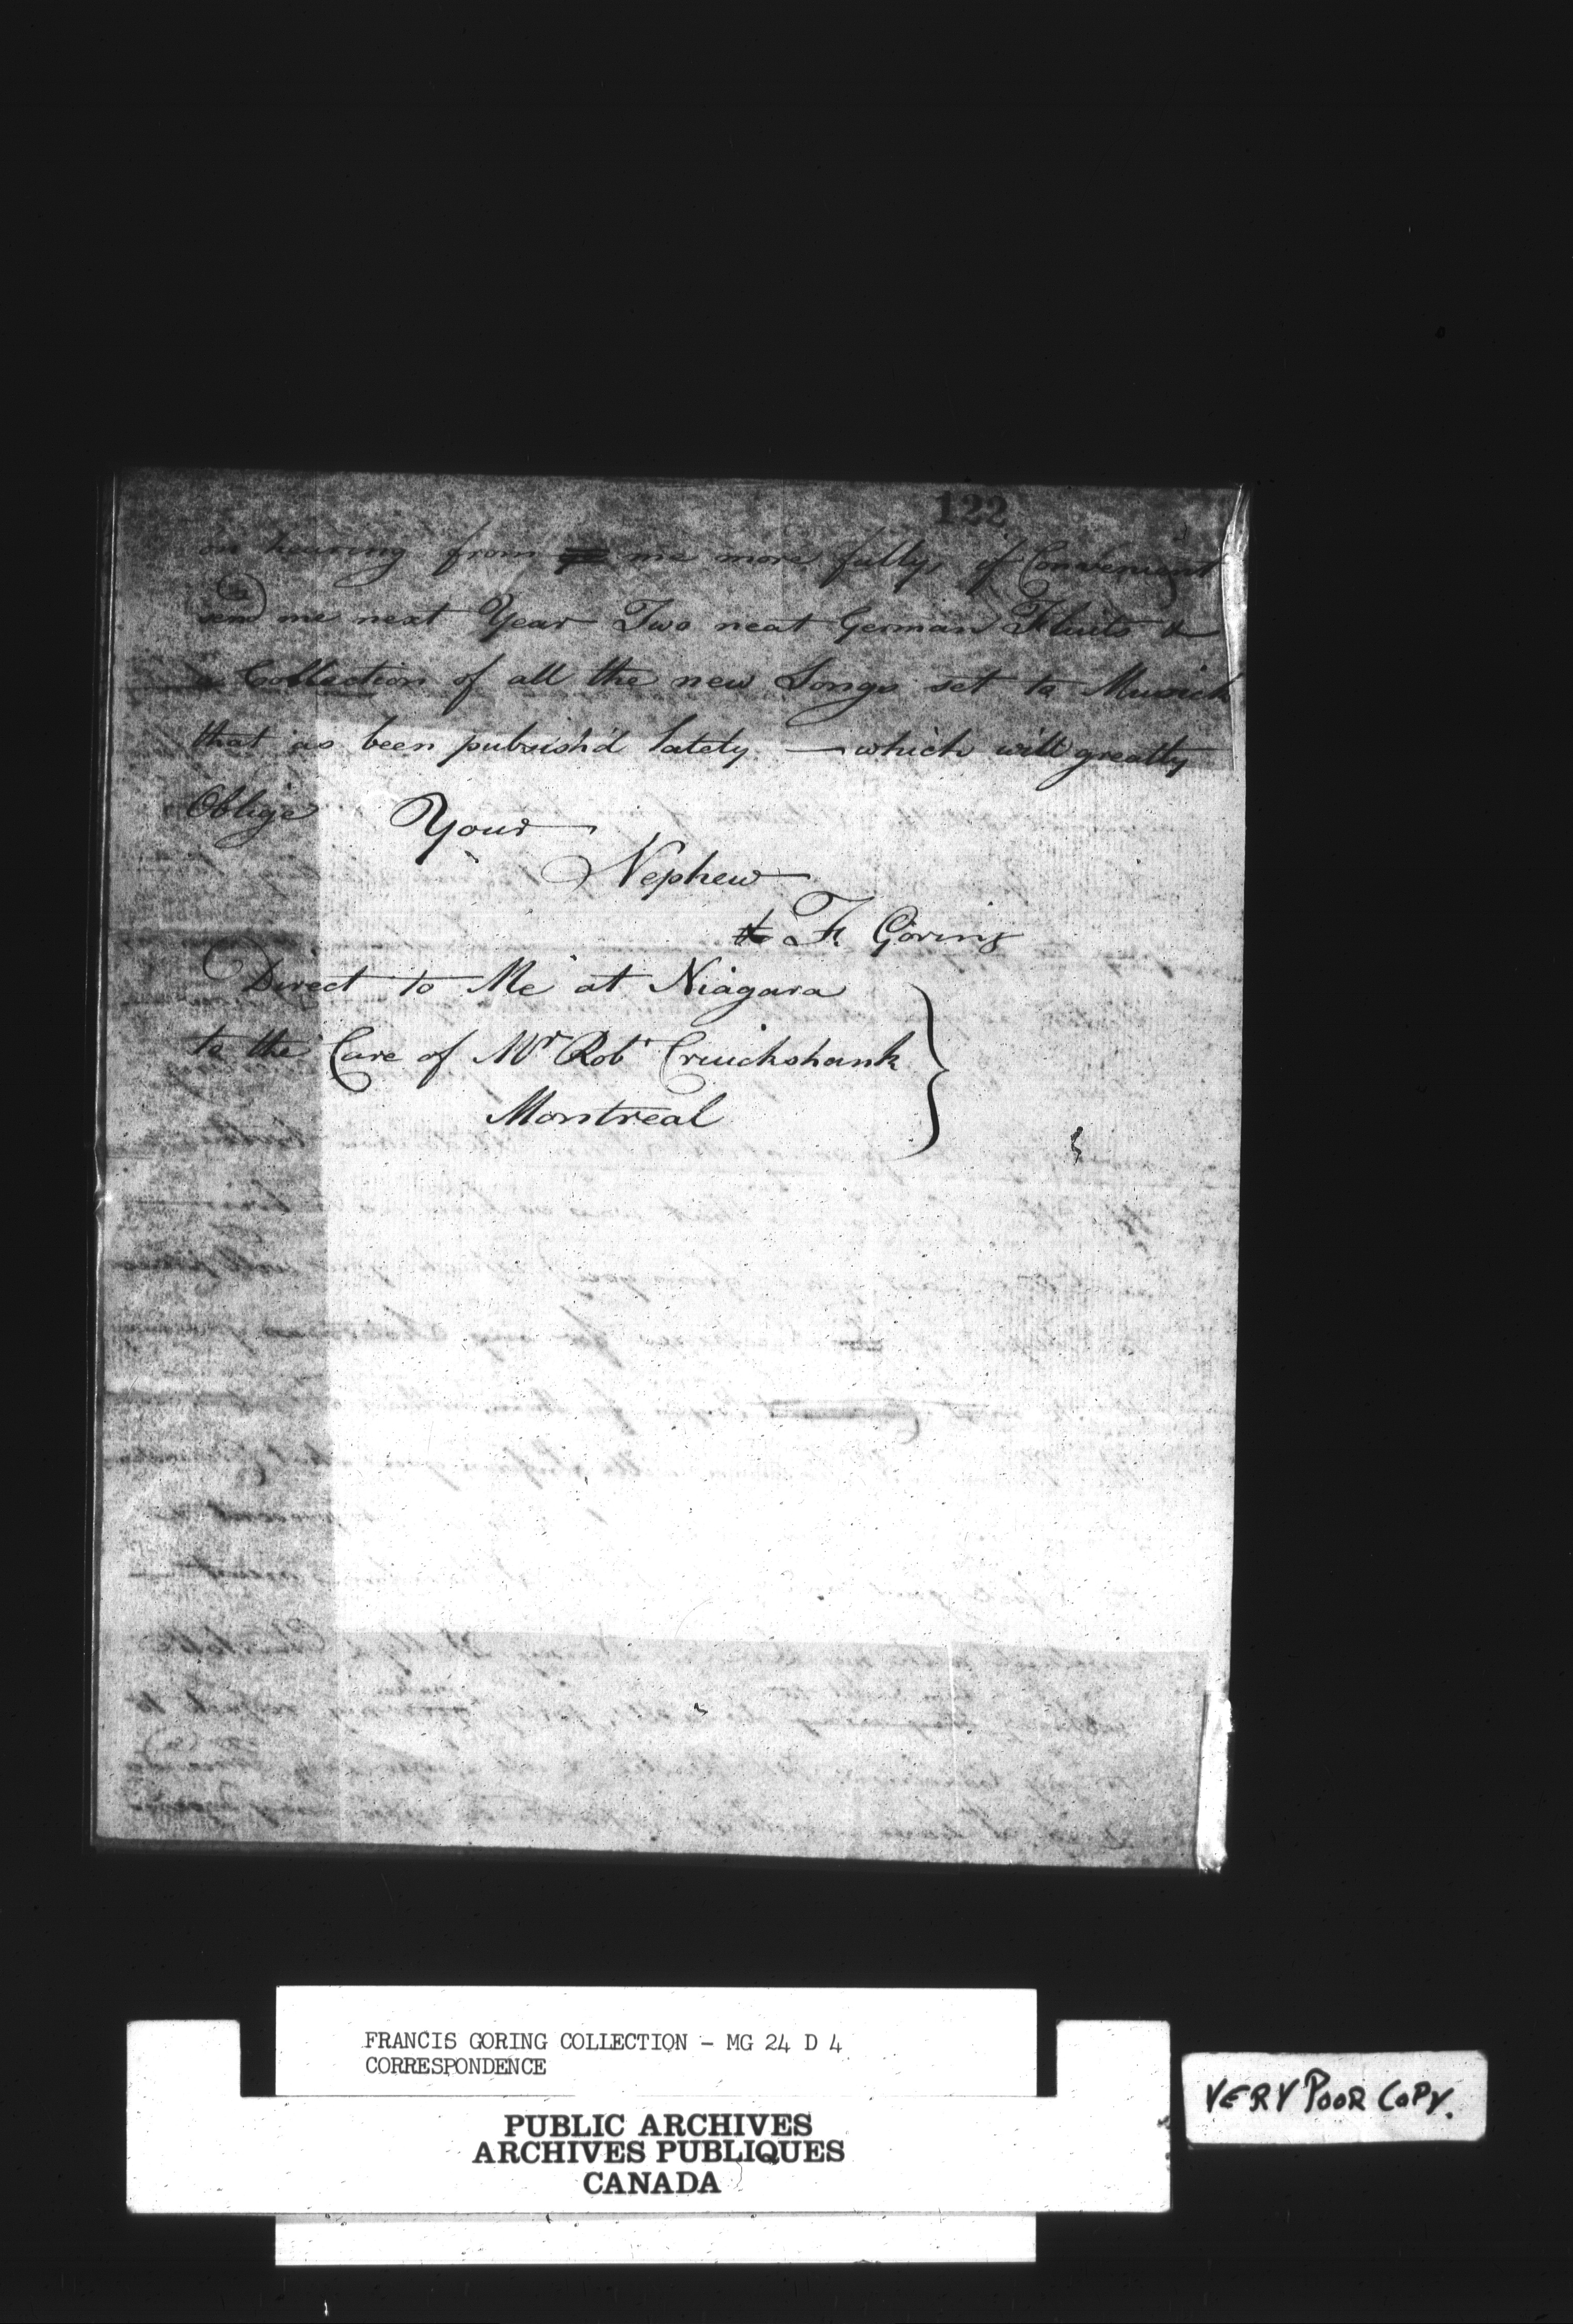 122
on hearing from me more fully, if Convenient
send me next Year Two neat German Fluits &
a Collection of all the new Songs set to Musick
that as been publish'd lately — which will greatly
Oblige Your
Nephew
F. Goring
Direct to Me at Niagara
to the Care of Mr Robt Cruickshank
Montreal
FRANCIS GORING COLLECTION - MG 24 D 4
CORRESPONDENCE
PUBLIC ARCHIVES
ARCHIVES PUBLIQUES
CANADA
VERY POOR COPY.